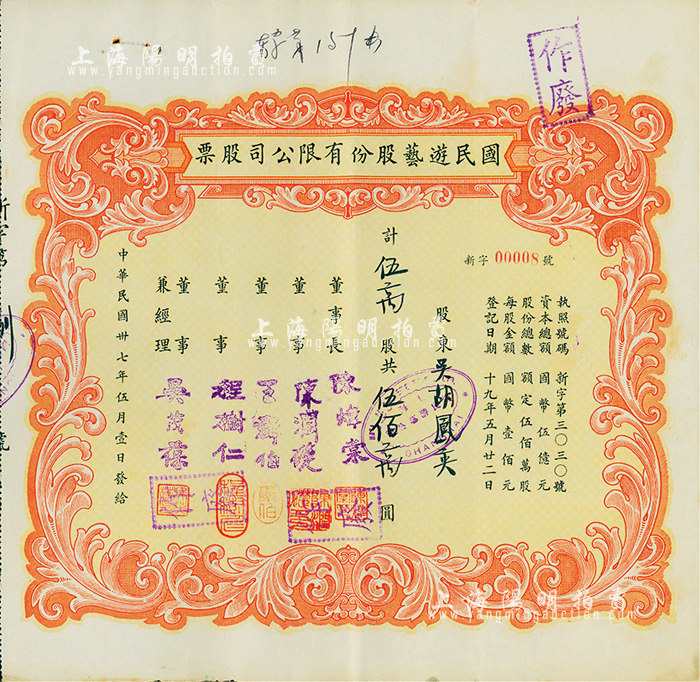 作廢
國民遊藝股份有限公司股票
新字 00008 號
執照號碼 新字第三〇三〇號
資本總額 國幣伍億元
股份總數 額定伍佰萬股
每股金額 國幣壹佰元
登記日期 十九年五月廿二日
股東 吴胡鳳英
計 伍萬 股共 伍佰萬 圓
董事長
董事 陳潤
董事
董事 程樹仁
董事兼經理 吴
中華民國卅七年伍月壹日發給
上海陽明拍賣
www.yangmingauction.com
上海陽明拍賣
www.yangmingauction.com
上海陽明拍賣
www.yangmingauction.com